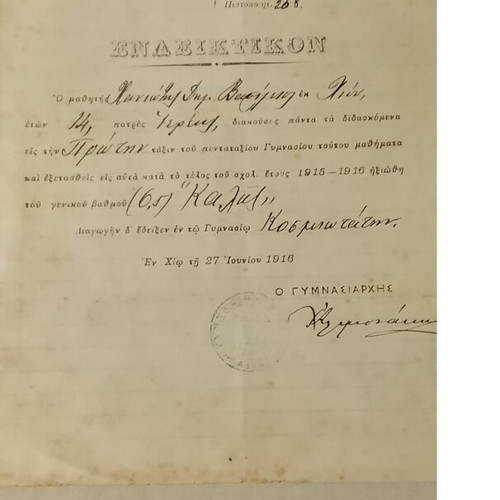 Πιστοποιητ. 208.
ΕΝΔΕΙΚΤΙΚΟΝ
Ὁ μαθητὴς Δημ. Βασίλειος ἐκ Χίου,
ἐτῶν 14, πατρὸς Ἱερέως, διακούσας πάντα τὰ διδασκόμενα
εἰς τὴν Πρώτην τάξιν τοῦ πενταταξίου Γυμνασίου τούτου μαθήματα
καὶ ἐξετασθεὶς εἰς αὐτὰ κατὰ τὸ τέλος τοῦ σχολ. ἔτους 1915–1916 ἠξιώθη
τοῦ γενικοῦ βαθμοῦ "Καλῶς"
Διαγωγὴν δ' ἔδειξεν ἐν τῷ Γυμνασίῳ Κοσμιωτάτην.
Ἐν Χίῳ τῇ 27 Ἰουνίου 1916
Ο ΓΥΜΝΑΣΙΑΡΧΗΣ